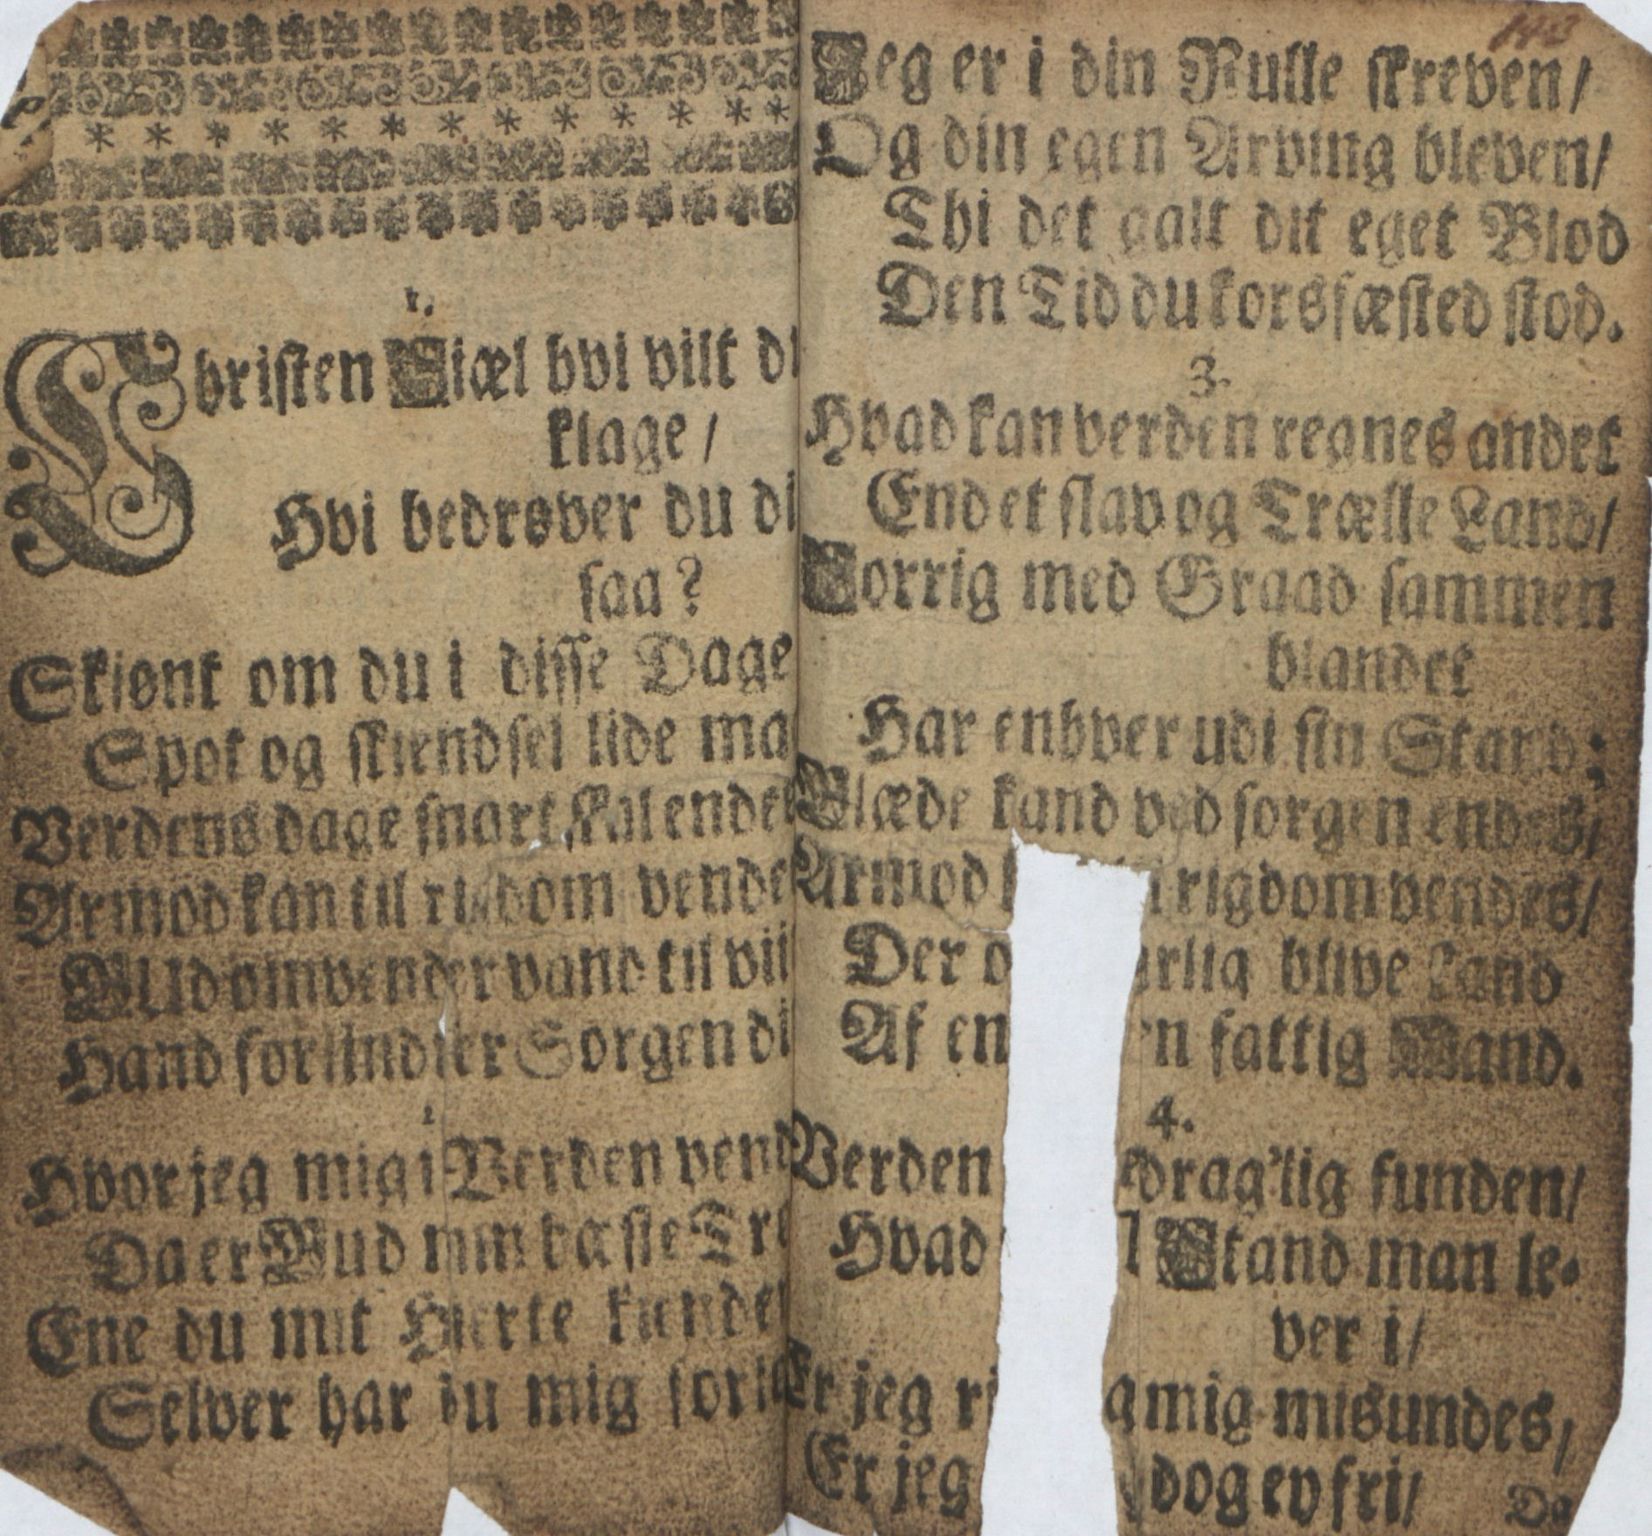 1.
Christen Siæl hvi vilt
klage /
Hvi bedrøver du
saa?
Skiønt om du i disse Dage
Spot og skiendsel lide
Verdens dage snart skal
Armod kan til rigdom
Gud omvender vand til
Hand forlindrer Sorgen
Hvor jeg mig i Verden
Da er Gud min bæste
Ene du mit Hierte
Selver har du mig
143
Jeg er i din Rulle skreven/
Og din egen Arving bleven/
Thi det galt dit eget Blod
Den Tid du korsfæsted stod.
3.
Hvad kan verden regnes andet
End et slav og Trælle Land/
Sorrig med Graad sammen
blandet
Har enhver udi sin Stand;
Glæde kand ved sorgen endes/
Armod rigdom vendes/
Der blive Land
Af fattig Mand.
4.
Verden funden/
Hvad Stand man le-
ver i/
Er jeg mig misundes,
Er jeg dog ey fri/
Da